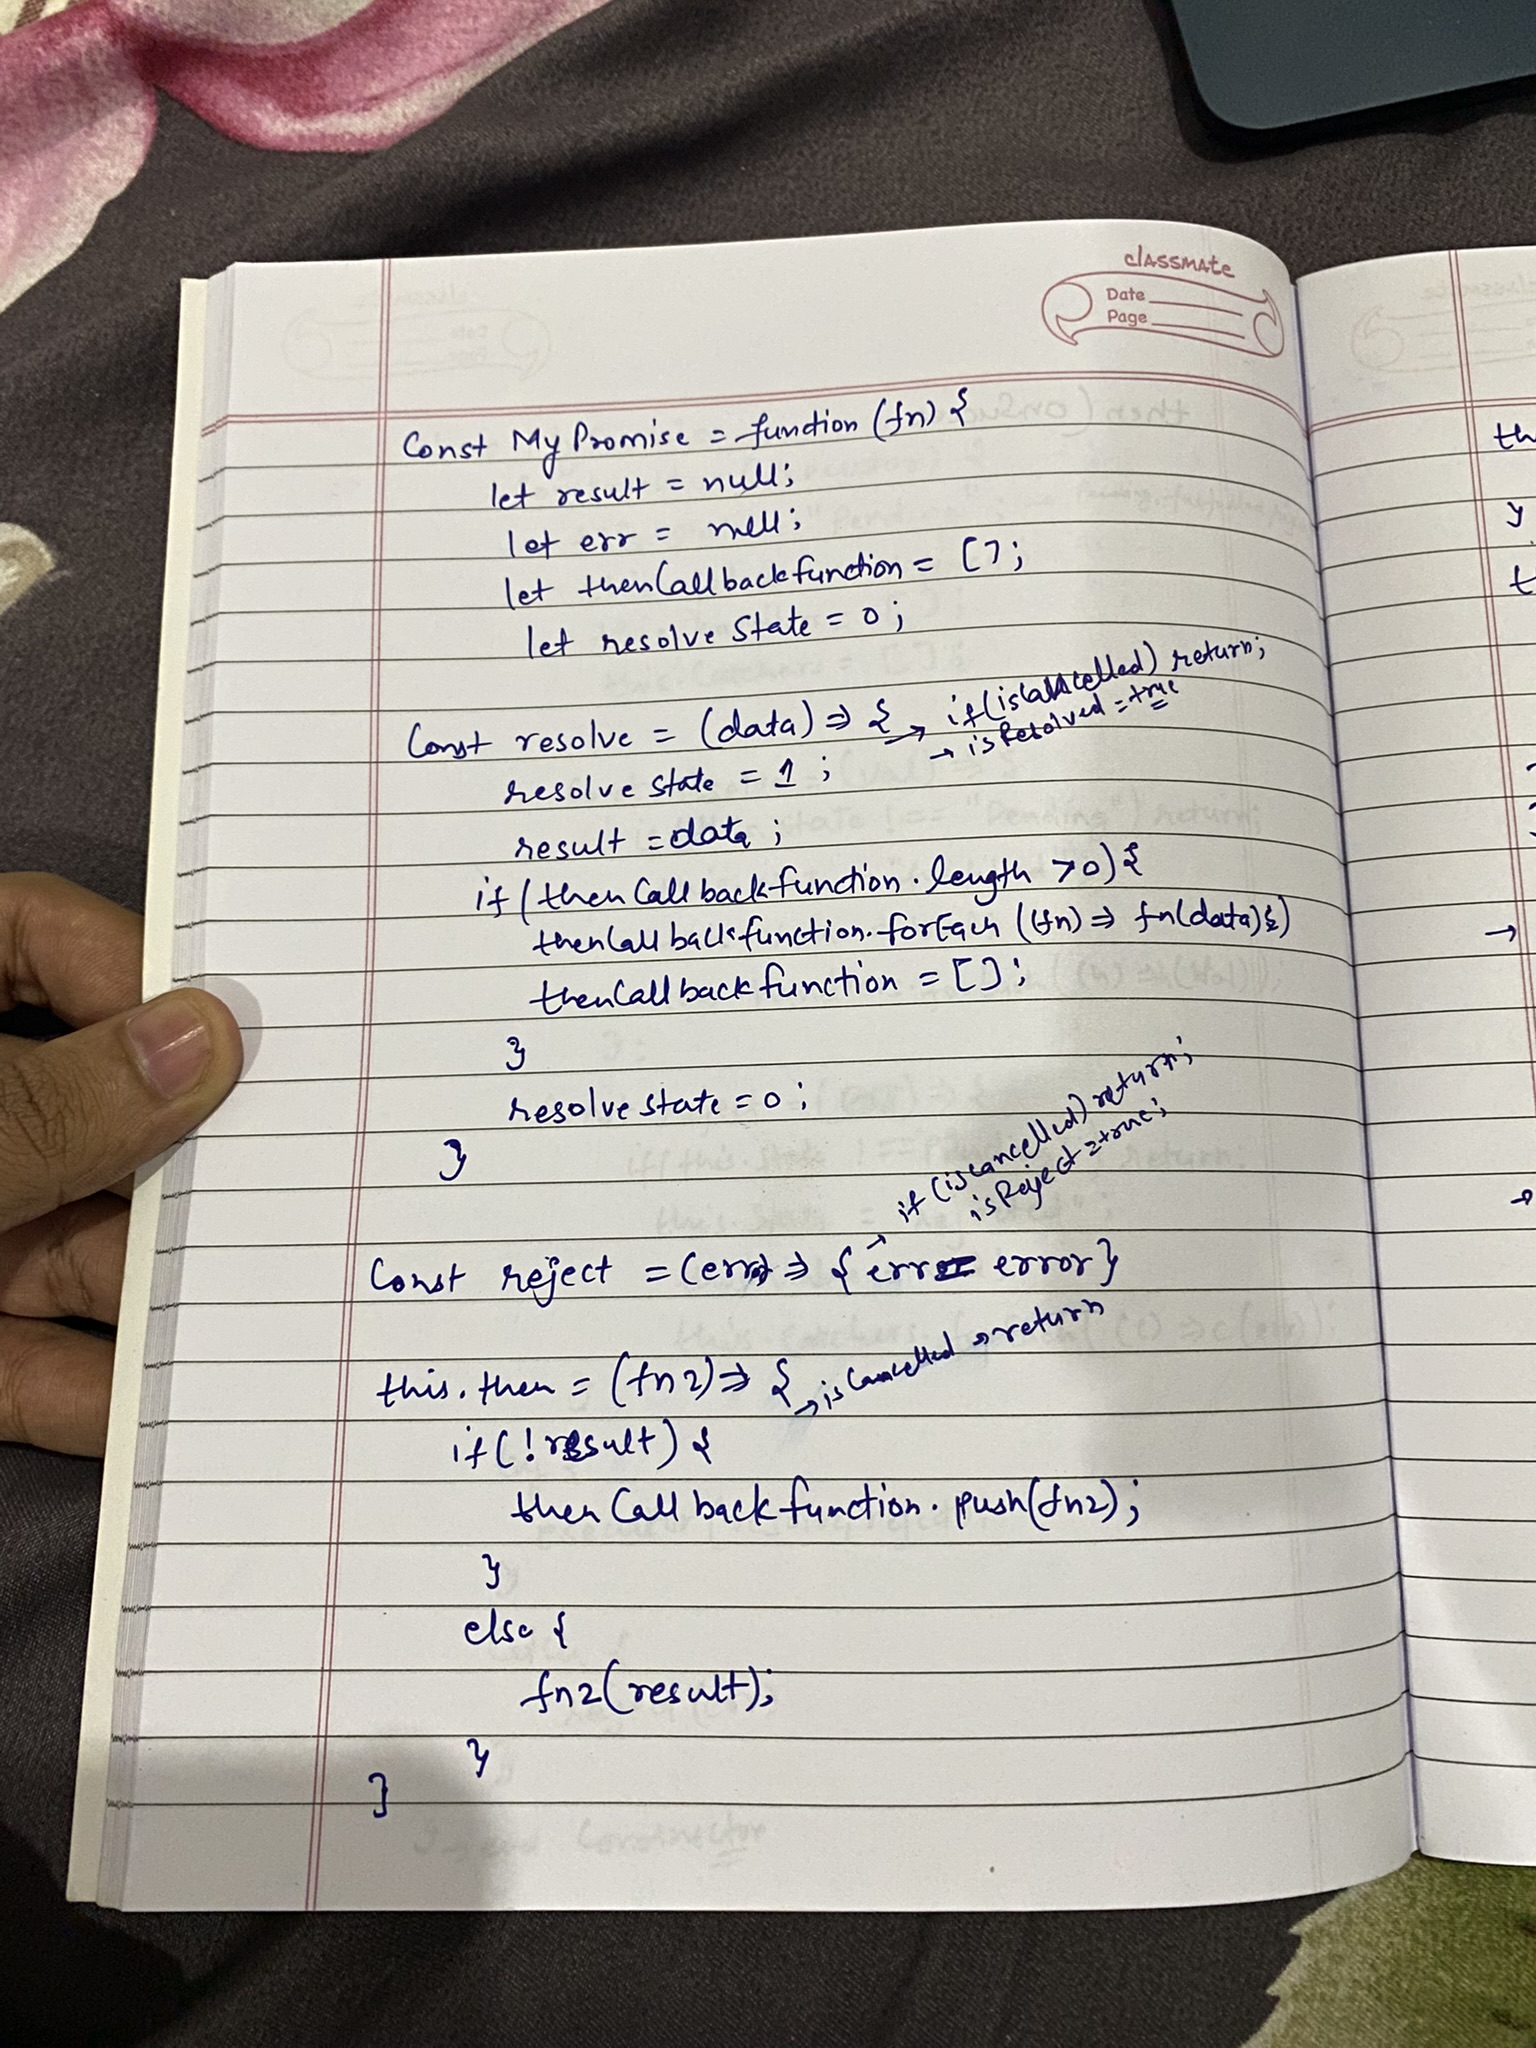 classmate
Date
Page
Const MyPromise = function (fn) {
let result = null;
let err = null;
let thenCallbackfunction = [];
let resolve State = 0;
Const resolve = (data) => { → if(isCancelled) return;
→ isResolved = true
resolve state = 1 ;
result = data ;
if (then Callbackfunction.length > 0) {
thenCallbackfunction.forEach ((fn) => fn(data))
thenCallbackfunction = [];
}
resolve state = 0 ;
}
if (iscancelled) return;
isReject = true;
Const reject = (err) => { → err = error }
this.then = (fn2) => { → isCancelled → return
if (!result) {
then Callbackfunction.push(fn2);
}
else {
fn2(result);
}
}
th
y
t
→
→